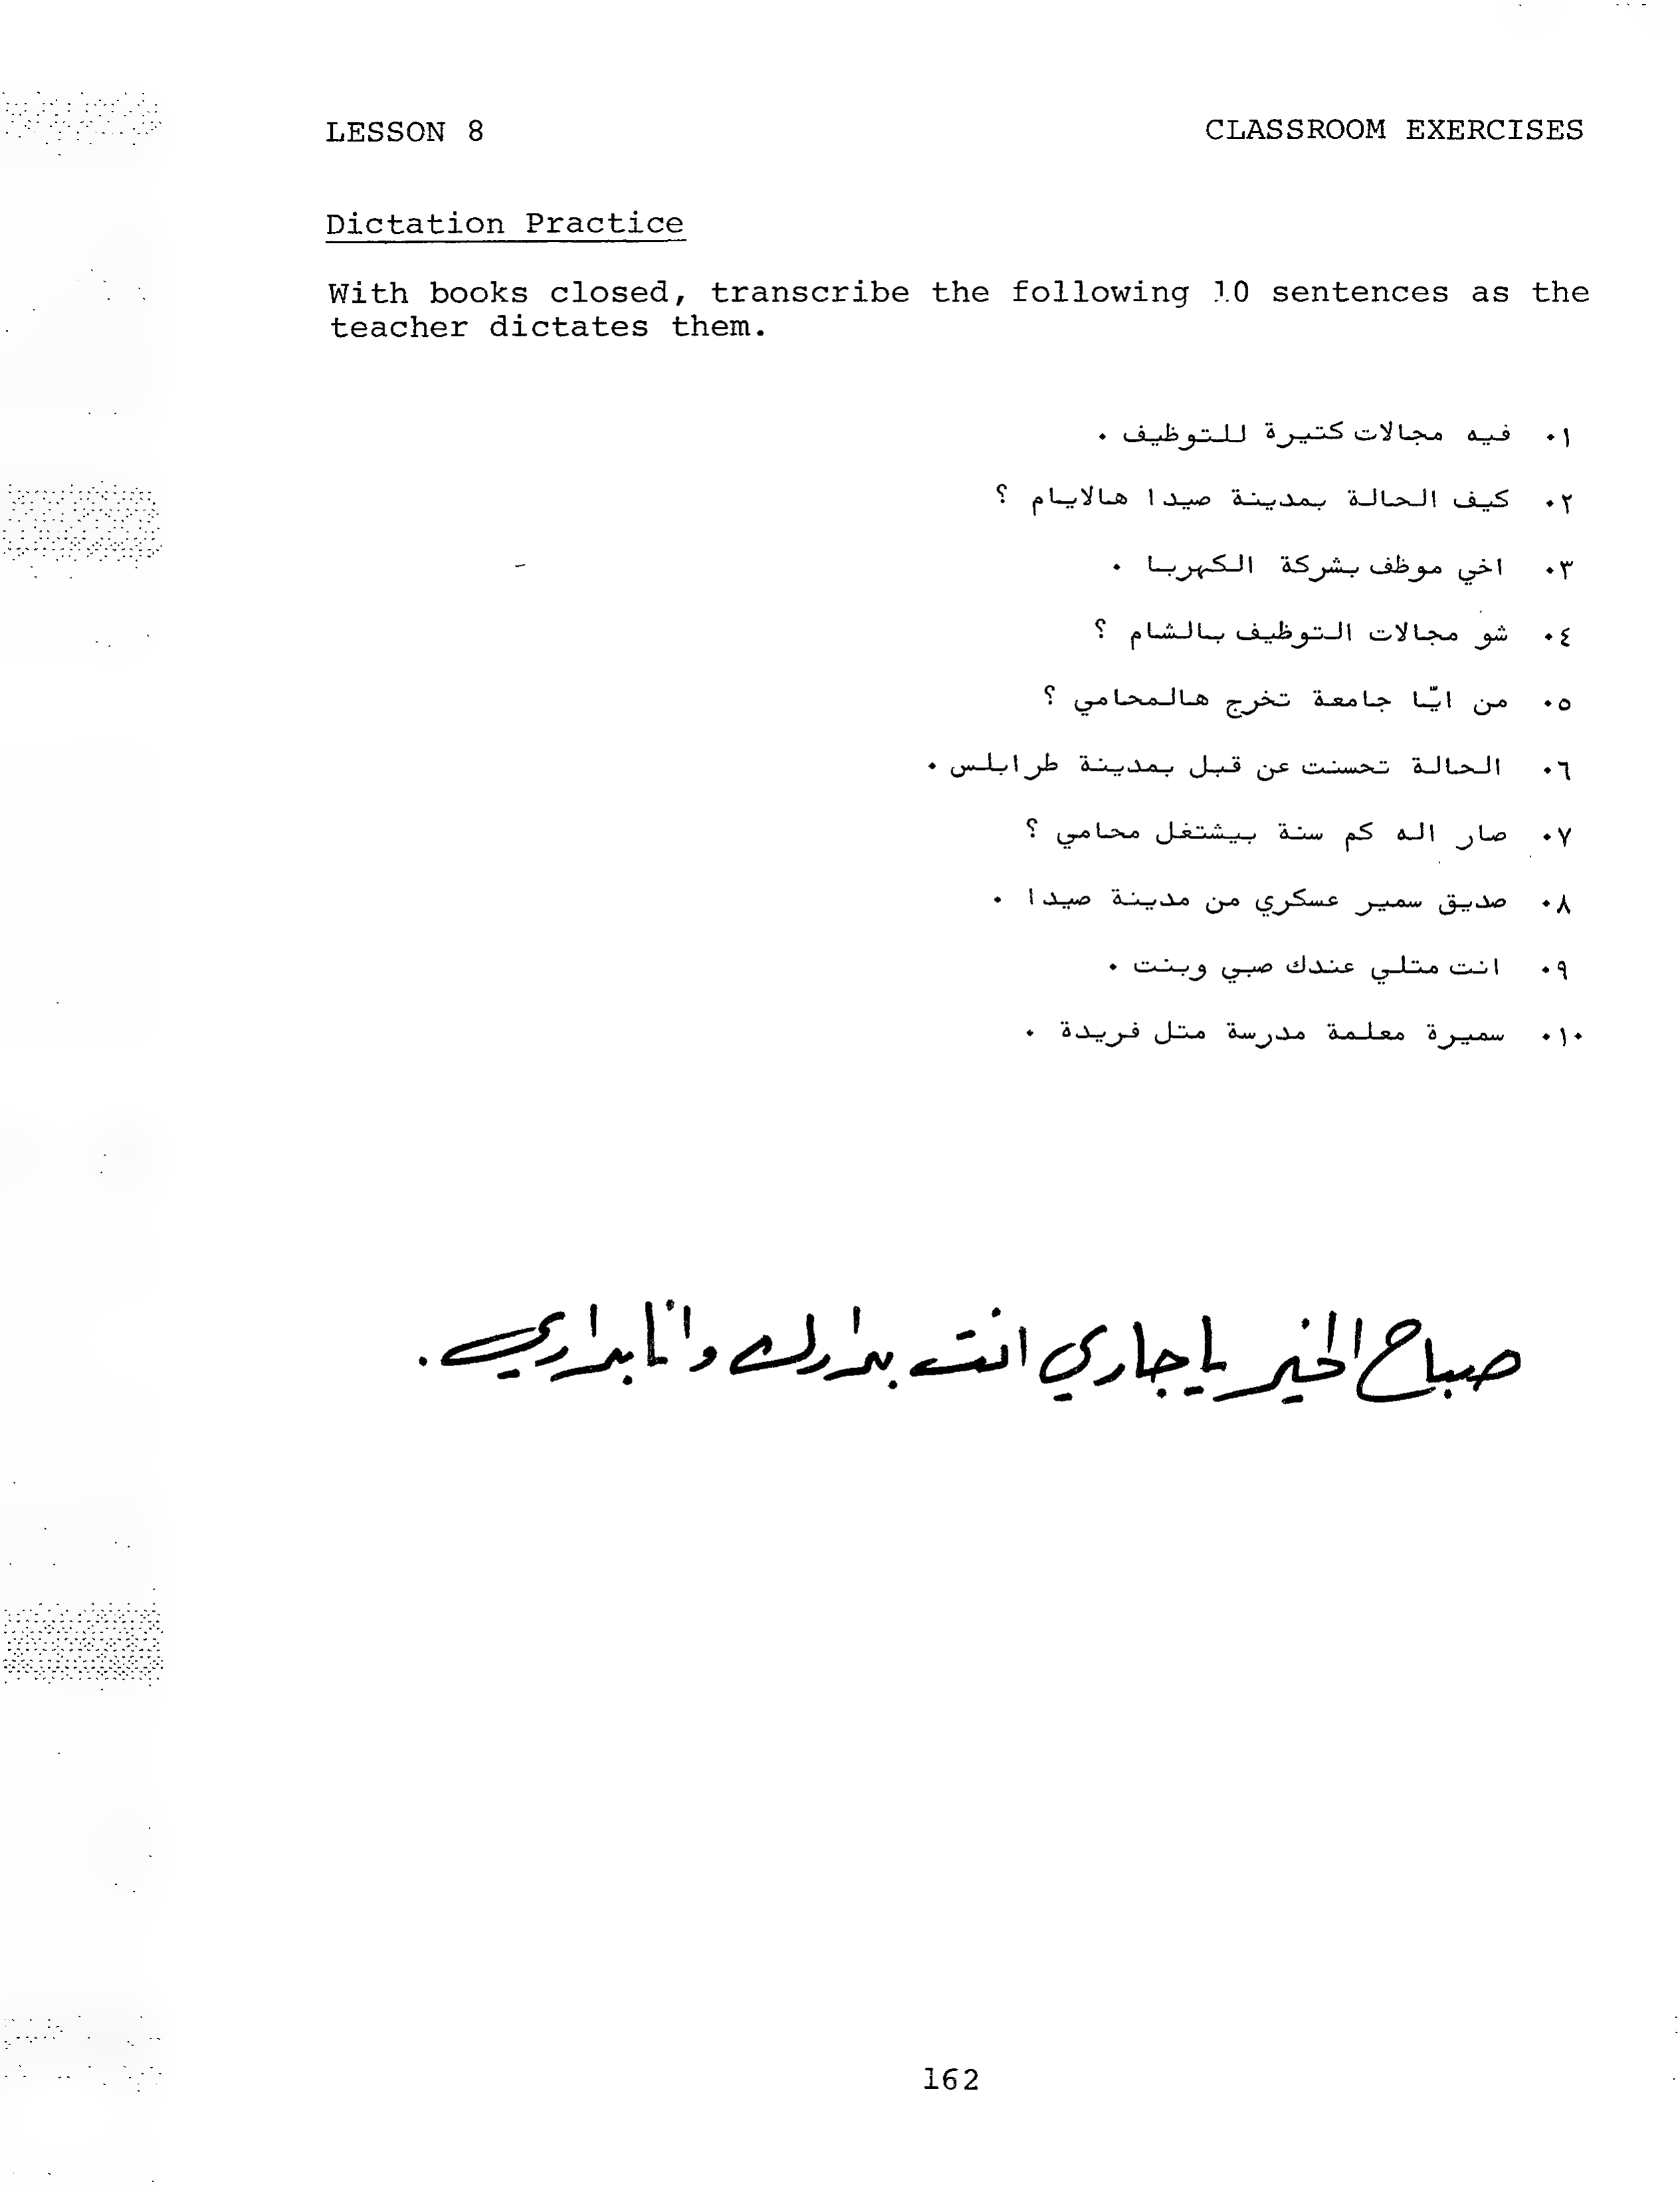 LESSON 8
CLASSROOM EXERCISES
Dictation Practice
With books closed, transcribe the following 10 sentences as the
teacher dictates them.
١. فيه مجالات كتيرة للتوظيف .
٢. كيف الحالة بمدينة صيدا هالايام ؟
٣. اخي موظف بشركة الكهربا .
٤. شو مجالات التوظيف بالشام ؟
٥. من ايّا جامعة تخرج هالمحامي ؟
٦. الحالة تحسنت عن قبل بمدينة طرابلس .
٧. صار اله كم سنة بيشتغل محامي ؟
٨. صديق سمير عسكري من مدينة صيدا .
٩. انت متلي عندك صبي وبنت .
١٠. سميرة معلمة مدرسة متل فريدة .
صباح الخير يا جاري انت بدارك وانا بداري.
162